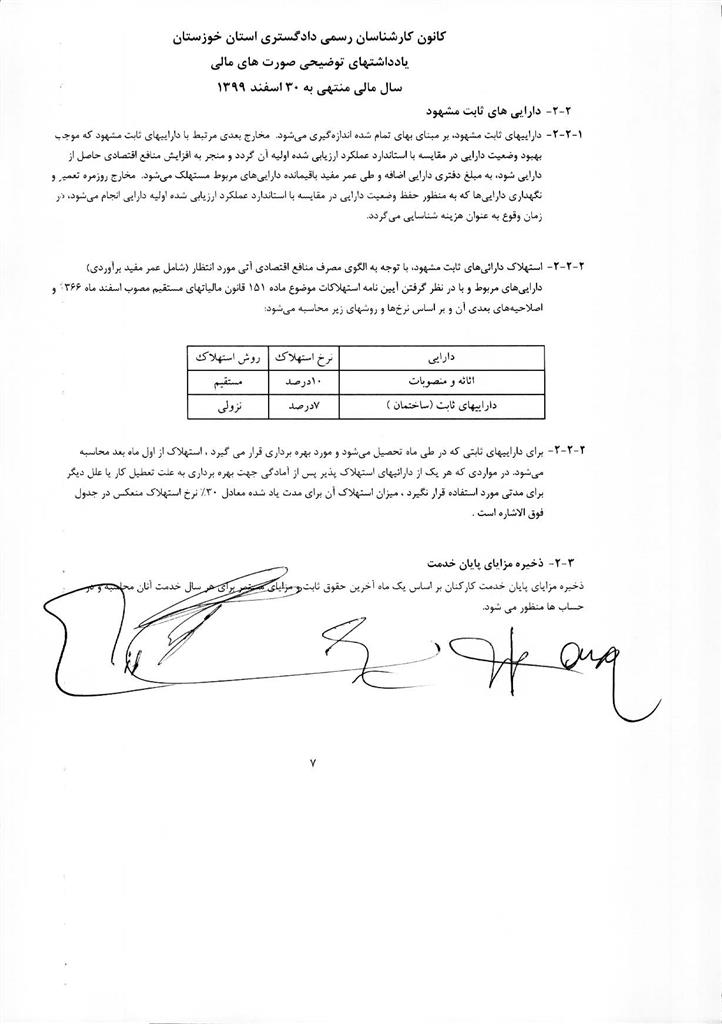 کانون کارشناسان رسمی دادگستری استان خوزستان
یادداشتهای توضیحی صورت های مالی
سال مالی منتهی به ۳۰ اسفند ۱۳۹۹
۲-۲- دارایی های ثابت مشهود
۲-۲-۱- داراییهای ثابت مشهود، بر مبنای بهای تمام شده اندازه‌گیری می‌شود. مخارج بعدی مرتبط با داراییهای ثابت مشهود که موجب
بهبود وضعیت دارایی در مقایسه با استاندارد عملکرد ارزیابی شده اولیه آن گردد و منجر به افزایش منافع اقتصادی حاصل از
دارایی شود، به مبلغ دفتری دارایی اضافه و طی عمر مفید باقیمانده دارایی‌های مربوط مستهلک می‌شود. مخارج روزمره تعمیر و
نگهداری دارایی‌ها که به منظور حفظ وضعیت دارایی در مقایسه با استاندارد عملکرد ارزیابی شده اولیه دارایی انجام می‌شود، در
زمان وقوع به عنوان هزینه شناسایی می‌گردد.
۲-۲-۲- استهلاک دارائی‌های ثابت مشهود، با توجه به الگوی مصرف منافع اقتصادی آتی مورد انتظار (شامل عمر مفید برآوردی)
دارایی‌های مربوط و با در نظر گرفتن آیین نامه استهلاکات موضوع ماده ۱۵۱ قانون مالیاتهای مستقیم مصوب اسفند ماه ۱۳۶۶ و
اصلاحیه‌های بعدی آن و بر اساس نرخ‌ها و روشهای زیر محاسبه می‌شود:
دارایی نرخ استهلاک روش استهلاک
اثاثه و منصوبات ۱۰درصد مستقیم
داراییهای ثابت (ساختمان ) ۷درصد نزولی
۲-۲-۲- برای داراییهای ثابتی که در طی ماه تحصیل می‌شود و مورد بهره برداری قرار می گیرد ، استهلاک از اول ماه بعد محاسبه
می‌شود. در مواردی که هر یک از دارائیهای استهلاک پذیر پس از آمادگی جهت بهره برداری به علت تعطیل کار یا علل دیگر
برای مدتی مورد استفاده قرار نگیرد ، میزان استهلاک آن برای مدت یاد شده معادل ۳۰٪ نرخ استهلاک منعکس در جدول
فوق الاشاره است .
۲-۳- ذخیره مزایای پایان خدمت
ذخیره مزایای پایان خدمت کارکنان بر اساس یک ماه آخرین حقوق ثابت و مزایای مستمر برای هر سال خدمت آنان محاسبه و در
حساب ها منظور می شود.
۷